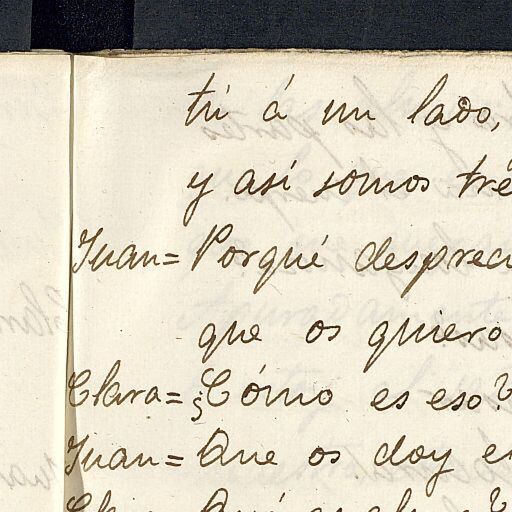 tú á un lado,
y así somos tré
Juan= Porqué despreci
que os quiero
Clara= ¿Cómo es eso?
Juan= Que os doy